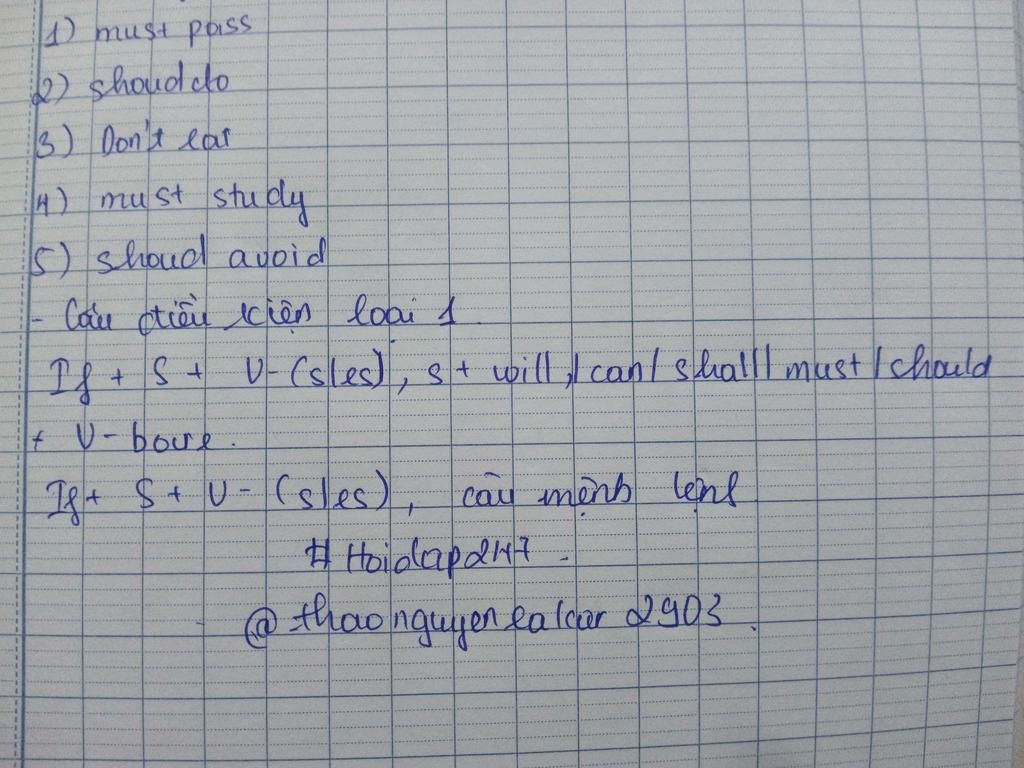 1) must pass
2) shoud do
3) Don't ear
4) must study
5) shoud avoid
- Câu điều kiện loại 1.
If + S + V-(s/es), s + will,/ can/ shall/ must / should
+ V-bare.
If + S + V-(s/es), câu mệnh lệnh
#Hoidap247.
@thaonguyen